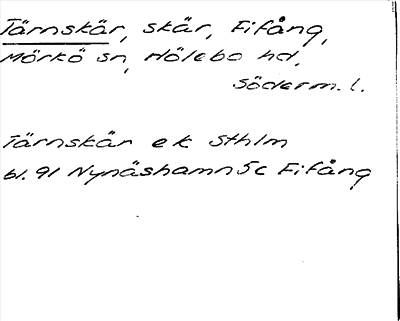 Tärnskär, skär, Fifång,
Mörkö sn, Hölebo hd,
Söderm. l.
Tärnskär ek Sthlm
bl. 91 Nynäshamn 5c Fifång